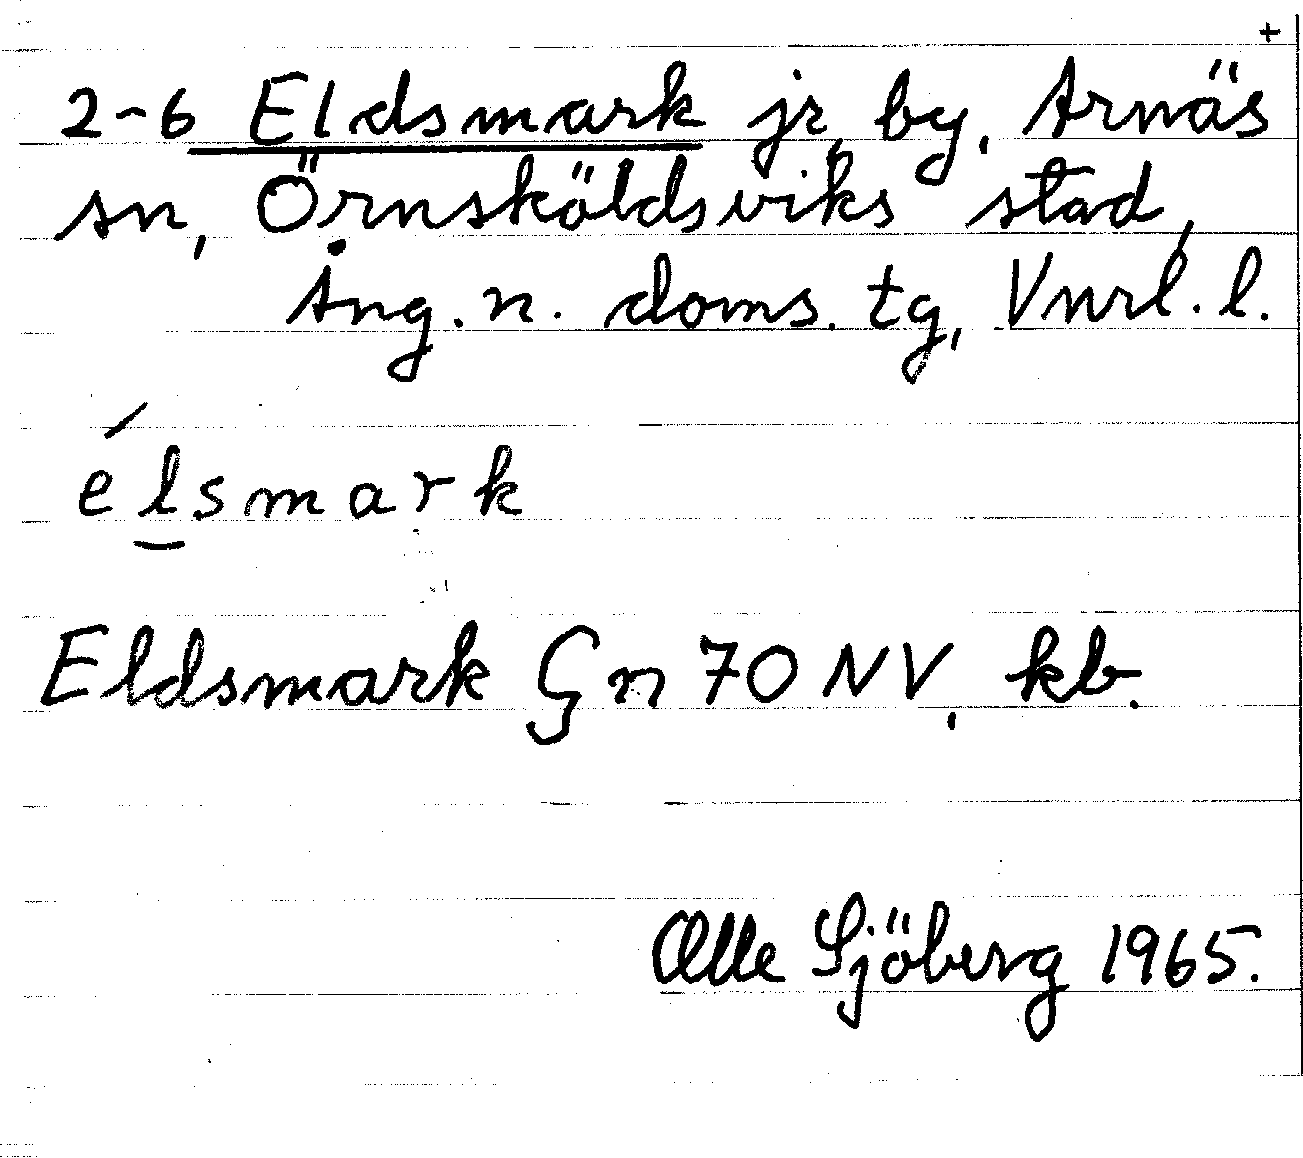 +
2-6 Eldsmark jr, by, Arnäs
sn, Örnsköldsviks stad,
Ång. n. doms. tg, Vnrl. l.
élsmark
Eldsmark Gn 70 NV, kb.
Olle Sjöberg 1965.